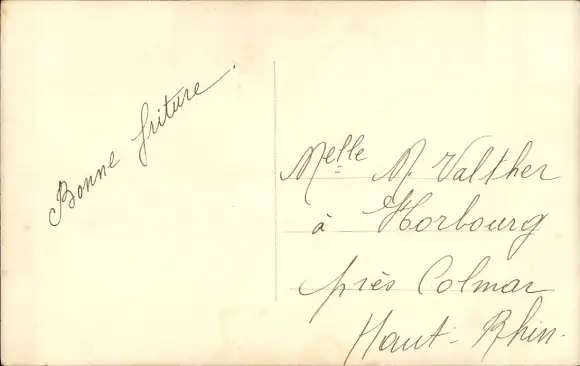 Bonne friture.
Melle M. Valther
à Horbourg
près Colmar
Haut-Rhin.